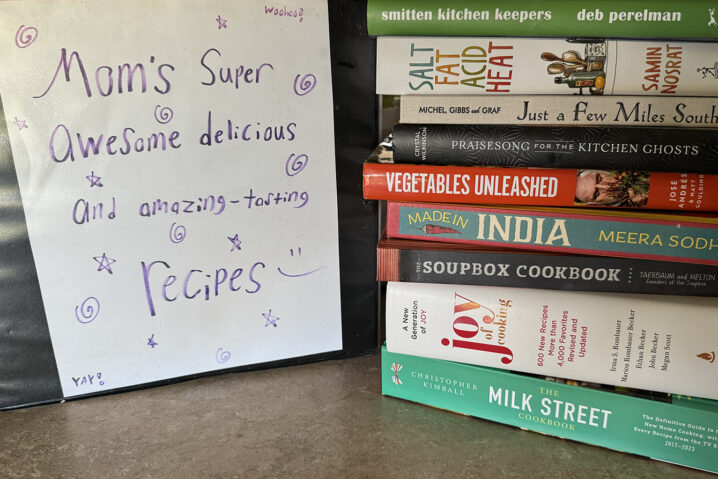 Woohoo!
Mom's Super
awesome delicious
and amazing-tasting
recipes
YAY!
smitten kitchen keepers deb perelman
SALT
FAT
ACID
HEAT
SAMIN
NOSRAT
MICHEL, GIBBS AND GRAF Just a Few Miles South
CRYSTAL
WILKINSON
PRAISESONG FOR THE KITCHEN GHOSTS
VEGETABLES UNLEASHED
JOSÉ
ANDRÉS
& MATT
GOULDING
MADE IN
INDIA
MEERA SODH
THE SOUPBOX COOKBOOK
TAERBAUM AND MELTON
Founders of the Soupbox
A New
Generation
of JOY
joy
of
cooking
600 New Recipes
More than
4,000 Favorites
Revised and
Updated
Irma S. Rombauer
Marion Rombauer Becker
Ethan Becker
John Becker
Megan Scott
CHRISTOPHER
KIMBALL
THE
MILK STREET
COOKBOOK
The Definitive Guide to
New Home Cooking, with
Every Recipe from the TV S
2017–2023